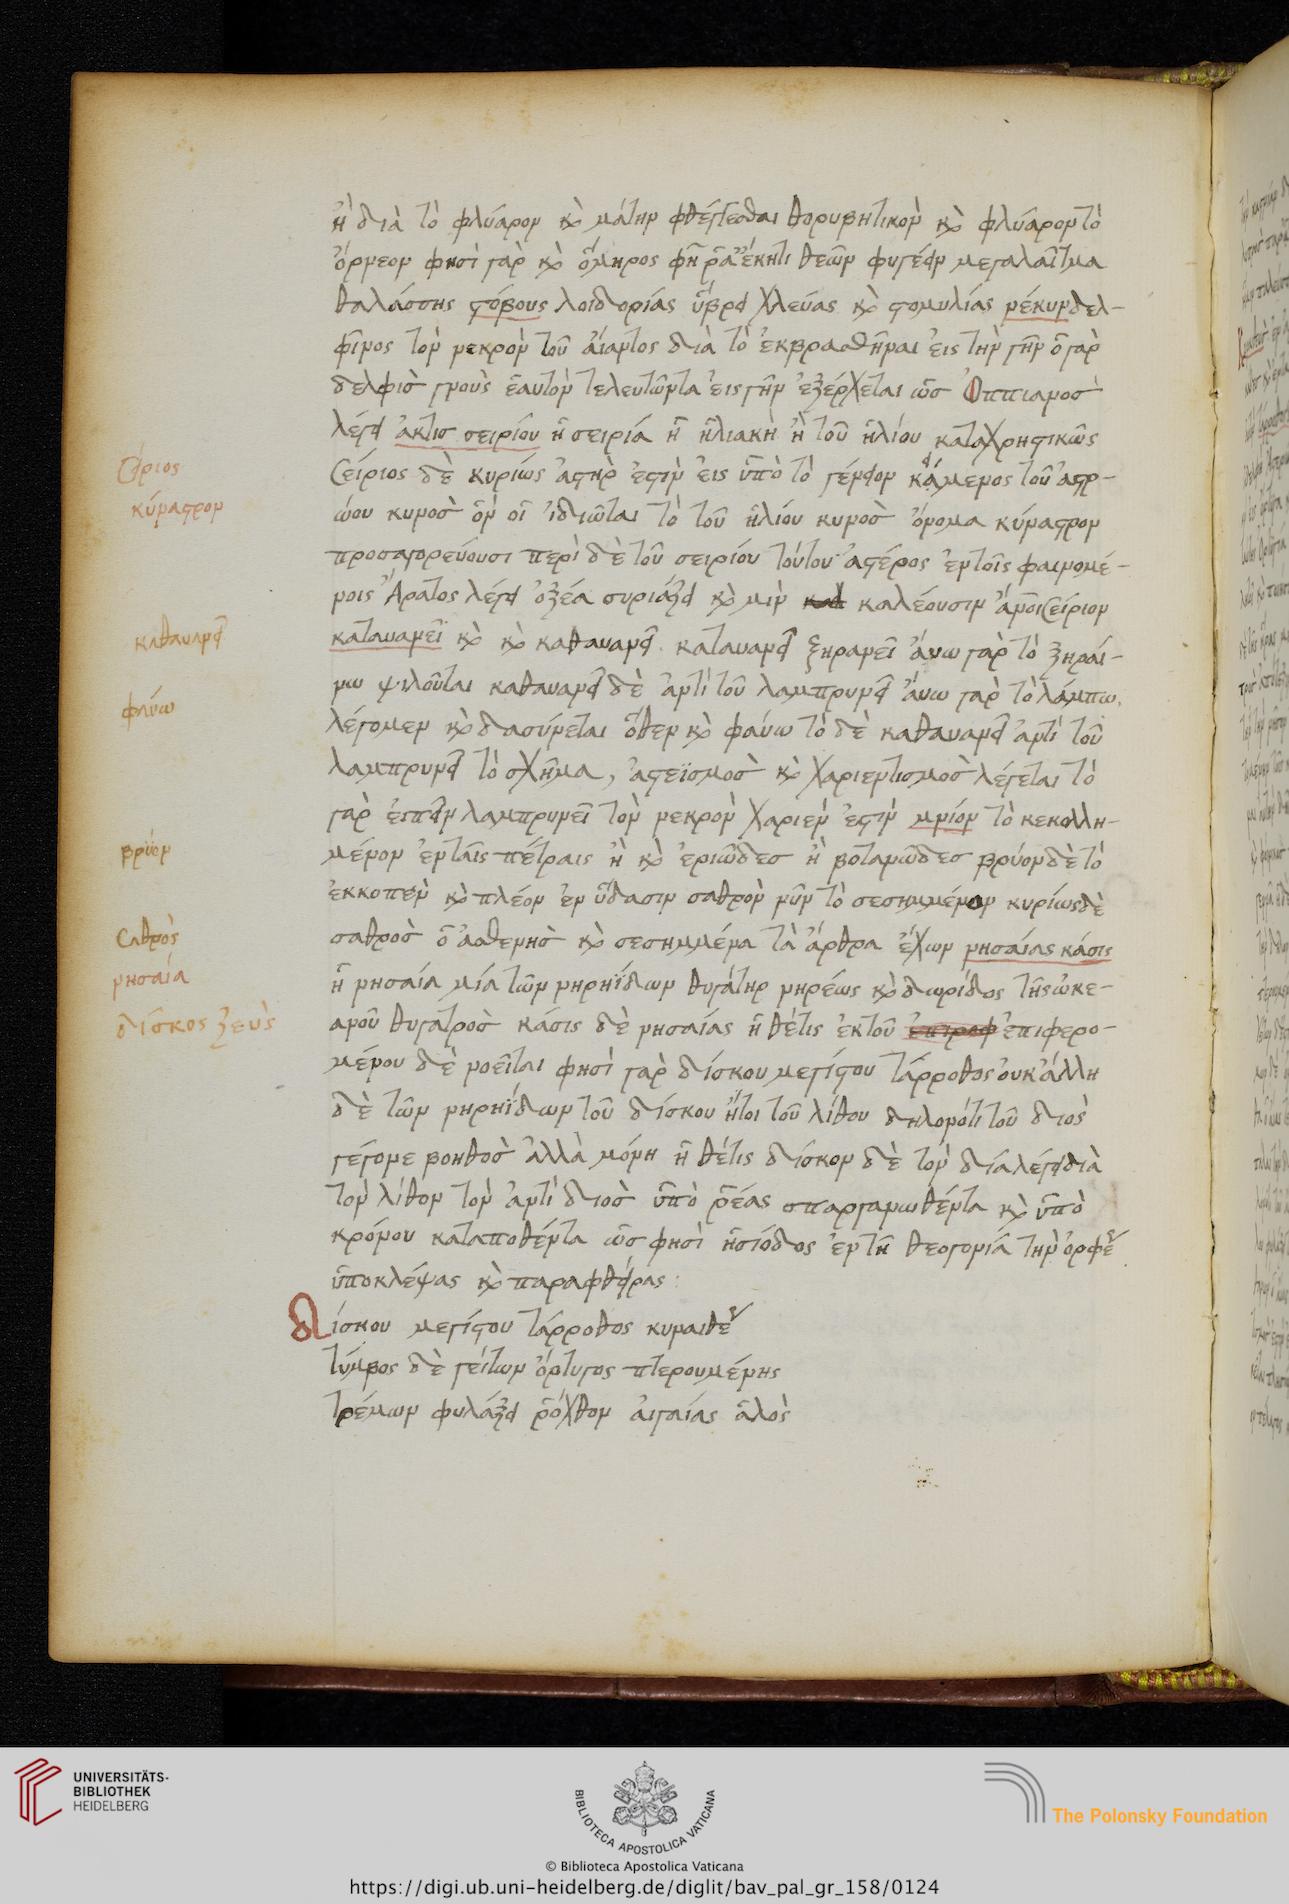 ἢ διὰ τὸ φλύαρον καὶ μάτην φθέγγεσθαι θορυβητικὸν καὶ φλύαρον τὸ
ὄρνεον φησὶ γὰρ καὶ ὅμηρος φῆ ῥ' ἀέκητι θεῶν φυγέειν μέγα λαῖτμα
θαλάσσης στόβους λοιδορίας ὕβρεις χλεύας καὶ στομυλίας νέκυν δελ-
φῖνος τὸν νεκρὸν τοῦ αἴαντος διὰ τὸ ἐκβρασθῆναι εἰς τὴν γῆν ὁ γὰρ
δελφὶσ γνοὺς ἑαυτὸν τελευτῶντα εἰς γῆν ἐξέρχεται ὥσ Ὀππιανοσ
λέγει ἀκτὶσ σειρίου ἡ σειρία ἢ ἡλιακὴ ἢ τοῦ ἡλίου καταχρηστικῶς
Σείριος δὲ κυρίως ἀστὴρ ἐστὶν εἰς ὑπὸ τὸ γένειον κείμενος τοῦ ἀστρ-
ώου κυνοσ ὃν οἱ ἰδιῶται τὸ τοῦ ἡλίου κυνοσ ὄνομα κύναστρον
προσαγορεύουσι περὶ δὲ τοῦ σειρίου τούτου ἀστέρος ἐν τοῖς φαινομέ-
νοις Ἄρατος λέγει ὀξέα σειριάζει καὶ μιν καλέουσιν ἄνθρωποι Σείριον
καταυανεῖ καὶ καὶ καθαυανεῖ. καταυανεῖ ξηρανεῖ ἄυω γὰρ τὸ ξηραί-
νω ψιλοῦται καθαυανεῖ δὲ ἀντὶ τοῦ λαμπρυνεῖ ἄυω γὰρ τὸ λάμπω.
λέγομεν καὶ δασύνεται ὅθεν καὶ φαύω τὸ δὲ καθαυανεῖ ἀντὶ τοῦ
λαμπρυνεῖ τὸ σχῆμα, ἀστεϊσμοσ καὶ χαριεντισμοσ λέγεται τὸ
γὰρ εἰπεῖν λαμπρυνεῖ τὸν νεκρὸν χαρίεν ἐστὶν μνίον τὸ κεκολλη-
μένον ἐν ταῖς πέτραις ἢ καὶ ἐριῶδεσ ἢ βοτανῶδεσ βρύον δὲ τὸ
ἐκκοπὲν καὶ πλέον ἐν ὕδασιν σαθρὸν νῦν τὸ σεσημμένον κυρίως δὲ
σαθροσ ὁ ἀσθενησ καὶ σεσημμένα τὰ ἄρθρα ἔχων νησαίας κάσις
ἡ νησαία μία τῶν νηρηΐδων θυγάτηρ νηρέως καὶ δωρίδος τῆς ὠκε-
ανοῦ θυγατροσ κάσις δὲ νησαίας ἡ θέτις ἐκ τοῦ ἐπιφερο-
μένου δὲ νοεῖται φησὶ γὰρ δίσκου μεγίστου τάρροθος οὐκ ἄλλη
δὲ τῶν νηρηΐδων τοῦ δίσκου ἤτοι τοῦ λίθου δηλονότι τοῦ διος
γέγονε βοηθοσ ἀλλὰ μόνη ἡ θέτις δίσκον δὲ τὸν δία λέγει διὰ
τὸν λίθον τὸν ἀντὶ διοσ ὑπὸ ῥέας σπαργανωθέντα καὶ ὑπὸ
κρόνου καταποθέντα ὥσ φησὶ ἡσίοδος ἐν τῇ θεογονίᾳ τὴν ὀρφέως
ὑποκλέψας καὶ παραφθείρας :
Δίσκου μεγίστου τάρροθος κυναιθέως
τύμβος δὲ γείτων ὄρτυγος πτερουμένης
τρέμων φυλάξει ῥόχθον αἰγαίας ἁλὸς
Σείριος
κύναστρον
καθαυανεῖ
φαύω
βρύον
Σαθρὸς
νησαία
δίσκος ζεὺς
UNIVERSITÄTS-
BIBLIOTHEK
HEIDELBERG
BIBLIOTECA APOSTOLICA VATICANA
The Polonsky Foundation
© Biblioteca Apostolica Vaticana
https://digi.ub.uni-heidelberg.de/diglit/bav_pal_gr_158/0124